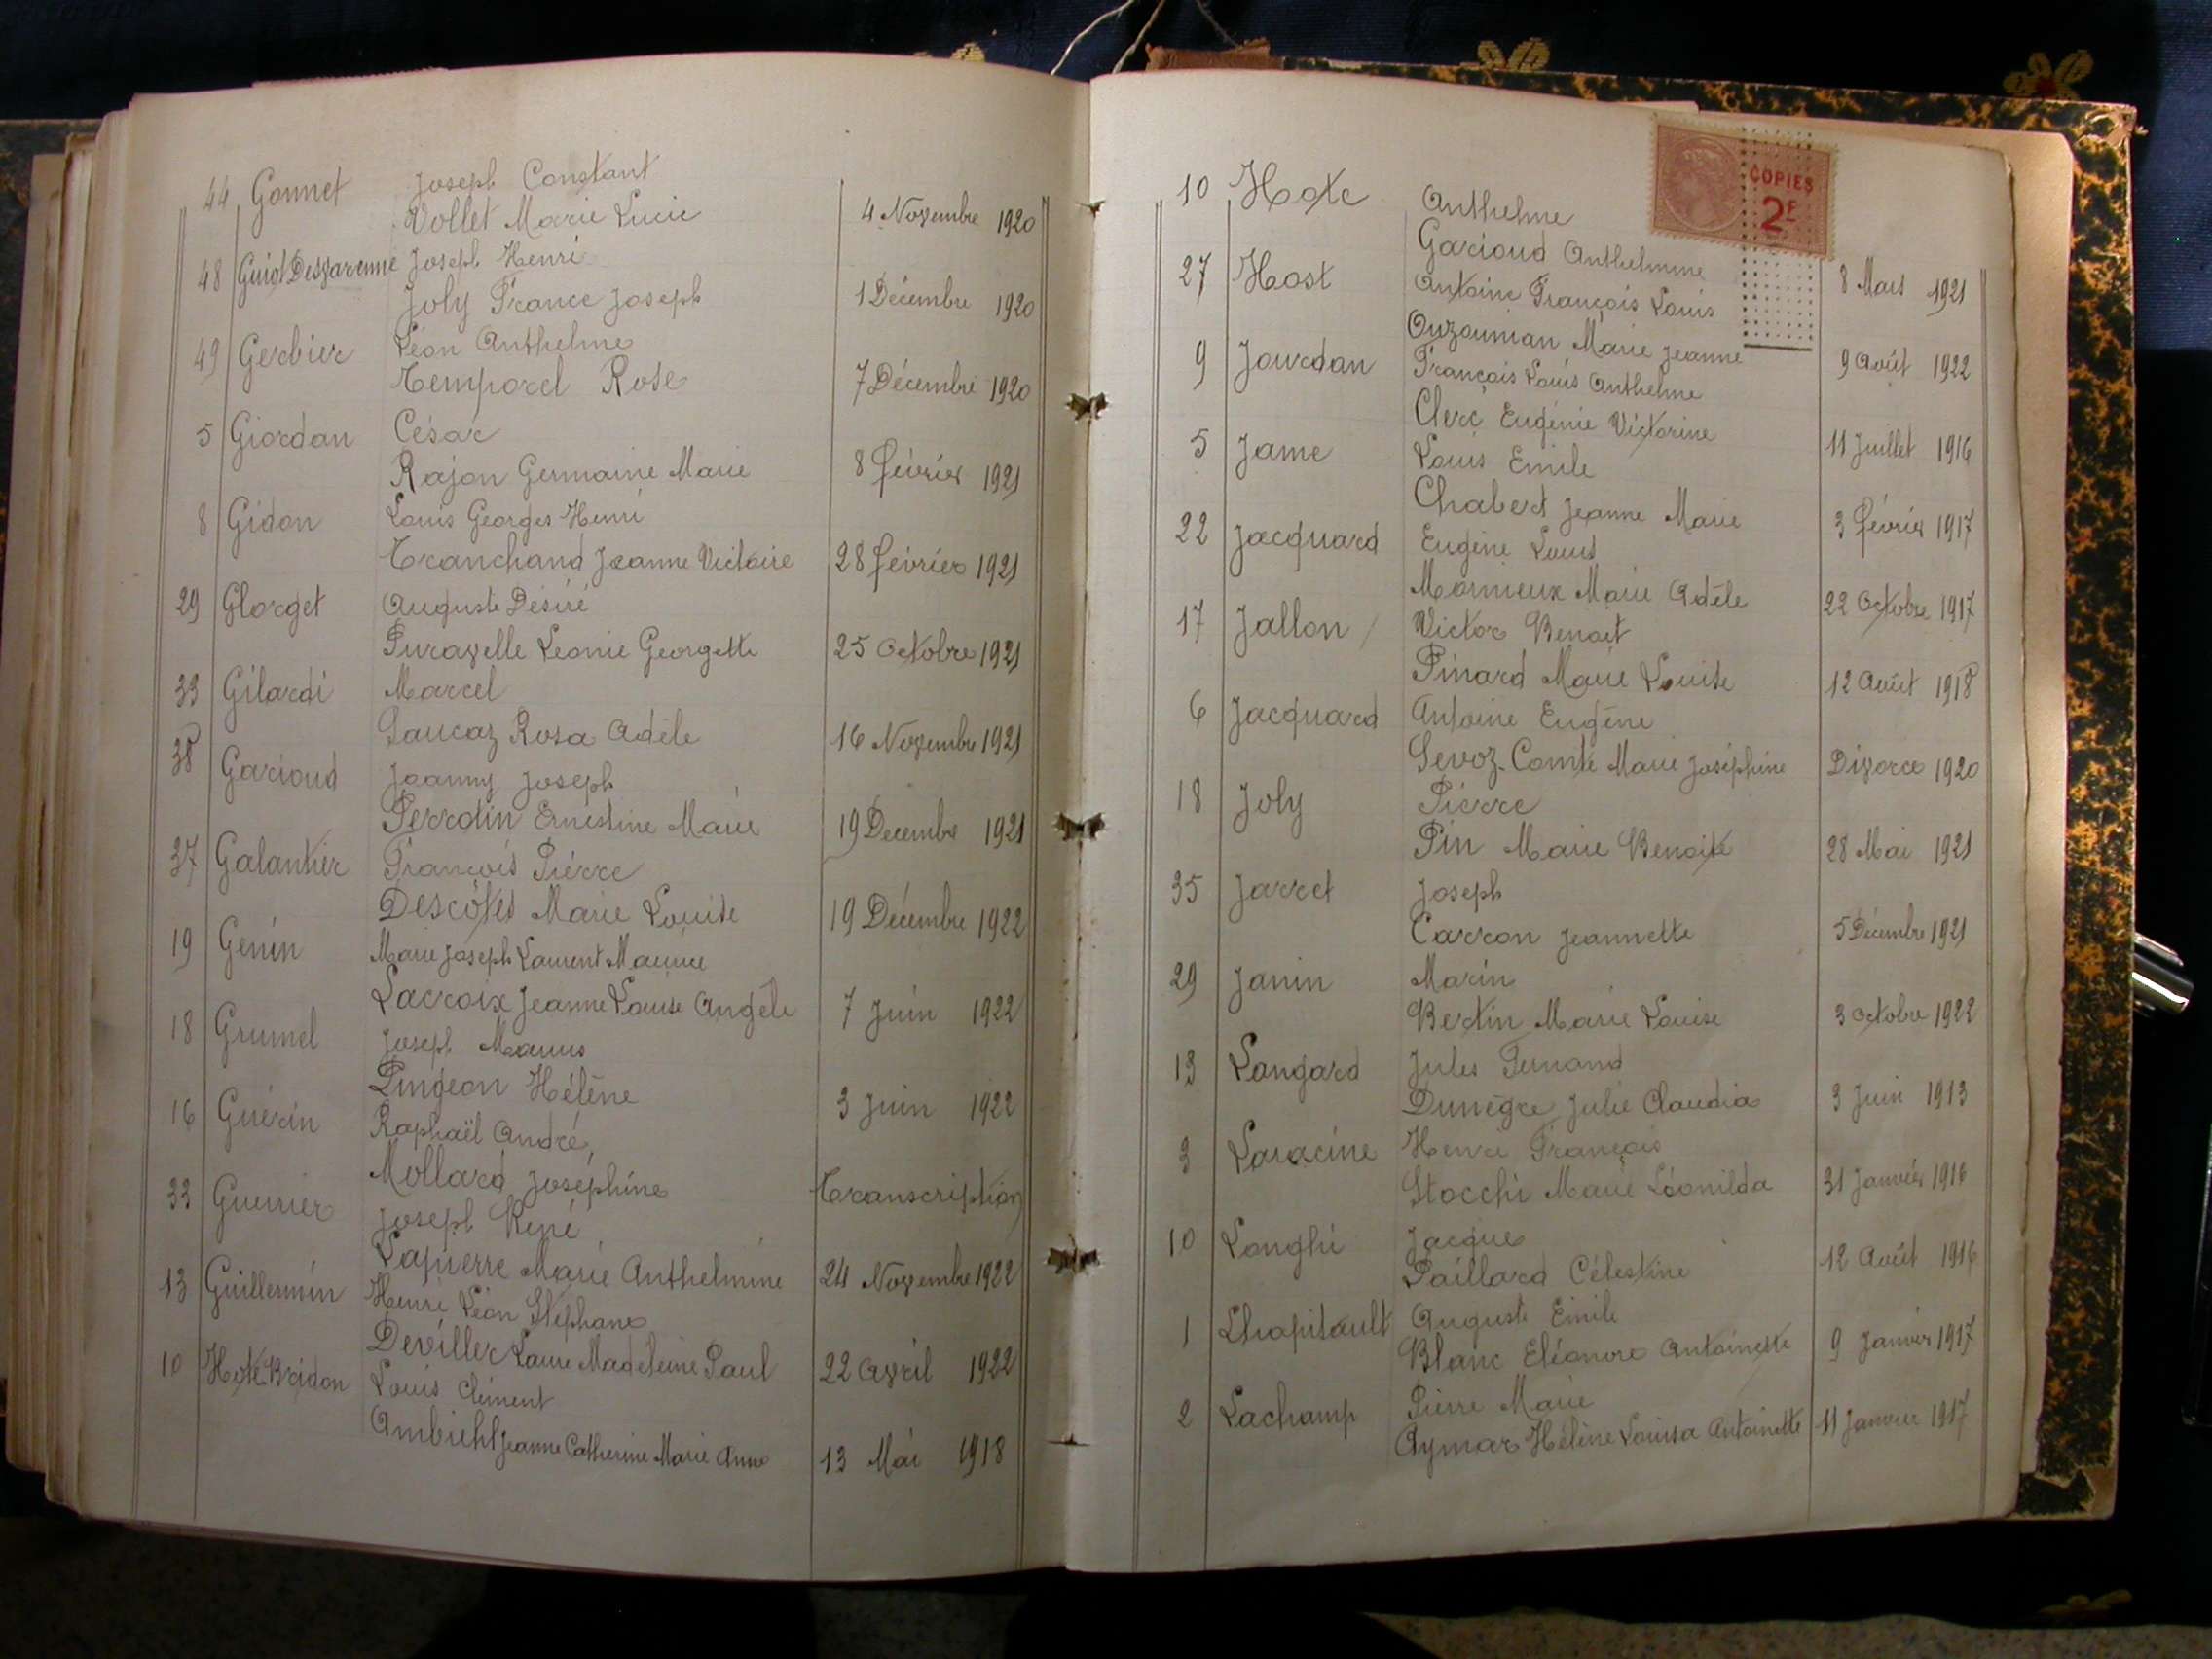 44 Gonnet Joseph Constant
Vollet Marie Lucie 4 Novembre 1920
48 Guiot Desvarenne Joseph Henri
Joly France Joseph 1 Décembre 1920
49 Gerbier Léon Anthelme
Temporel Rose 7 Décembre 1920
5 Giordan César
Rajon Germaine Marie 8 février 1921
8 Gidon Louis Georges Henri
Tranchand Jeanne Victoire 28 février 1921
29 Glorget Auguste Désiré
Puravelle Léonie Georgette 25 Octobre 1921
33 Gilardi Marcel
Rosa Adèle 16 Novembre 1921
38 Garioud Joanny Joseph
Perrotin Ernestine Marie 19 Décembre 1921
37 Galantier François Pierre
Descôtes Marie Louise 19 Décembre 1922
19 Genin Marie Joseph Laurent Maurice
Lacroix Jeanne Louise Angèle 7 Juin 1922
18 Grumel Joseph Marius
Pingeon Hélène 3 Juin 1922
16 Guérin Raphaël André,
Mollard Joséphine Transcription
33 Guerrier Joseph René
Lapierre Marie Anthelmine 24 Novembre 1922
13 Guillermin Henri Léon Stéphane
Deviller Laure Madeleine Paul 22 Avril 1922
10 Hote-Bridon Louis Clément
Ambiehl Jeanne Catherine Marie Anne 13 Mai 1918
COPIES
2F
10 Hote Anthelme
Garioud Anthelmine 8 Mars 1921
27 Host Antoine François Louis
Ouzounian Marie Jeanne 9 Août 1922
9 Jourdan François Louis Anthelme
Clerc Eugénie Victorine 11 Juillet 1916
5 Jame Louis Emile
Chabert Jeanne Marie 3 février 1917
22 Jacquard Eugène Louis
Mornieux Marie Adèle 22 Octobre 1917
17 Jallon Victor Benoet
Pinard Marie Louise 12 Août 1918
6 Jacquard Antoine Eugène
Sevoz-Comte Marie Joséphine Divorce 1920
18 Joly Pierre
Pin Marie Benoite 28 Mai 1921
35 Jarret Joseph
Carron Jeannette 5 Décembre 1921
29 Janin Marin
Bertin Marie Louise 3 Octobre 1922
13 Langard Jules Fernand
Dunègre Julie Claudia 3 Juin 1913
3 Laracine Henri François
Stocchi Marie Léonilda 31 Janvier 1916
10 Longhi Jacques
Paillard Célestine 12 Août 1916
1 Lhapitault Auguste Emile
Blanc Eléonore Antoinette 9 Janvier 1917
2 Lachamp Pierre Marie
Aymar Hélène Louisa Antoinette 11 Janvier 1917